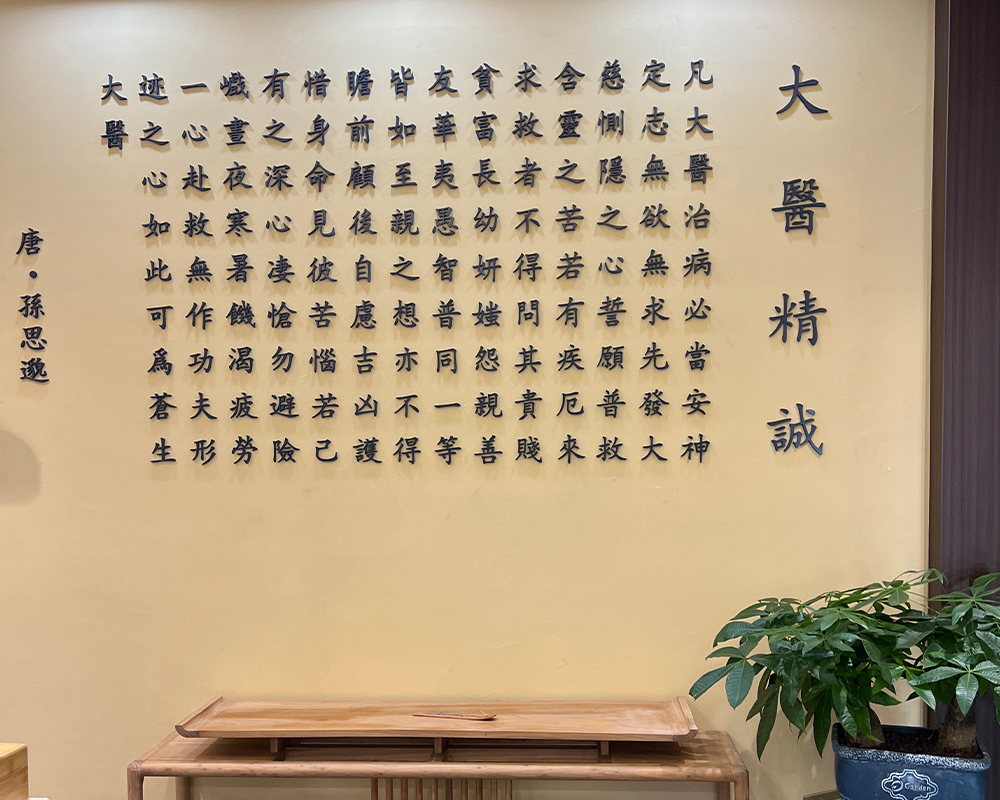 大醫精誠
凡大醫治病必當安神
定志無欲無求先發大
慈惻隱之心誓願普救
含靈之苦若有疾厄來
求救者不得問其貴賤
貧富長幼妍媸怨親善
友華夷愚智普同一等
皆如至親之想亦不得
瞻前顧後自慮吉凶護
惜身命見彼苦惱若己
有之深心凄愴勿避險
巇晝夜寒暑饑渴疲勞
一心赴救無作功夫形
迹之心如此可為蒼生
大醫
唐·孫思邈
Garden